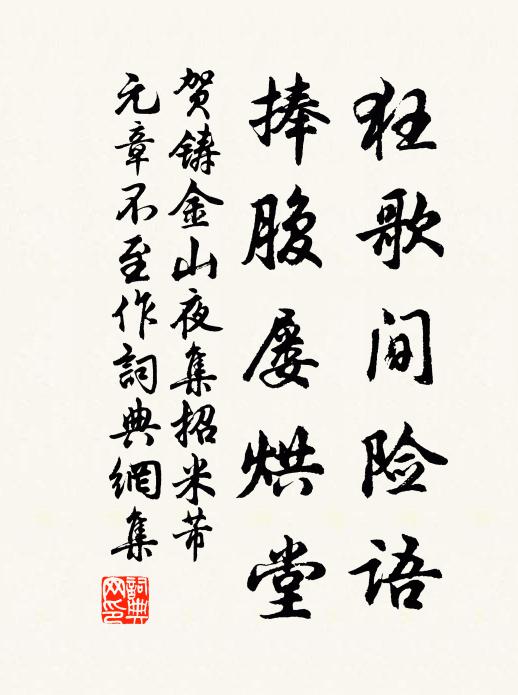 狂歌间险语
捧腹屡烘堂
贺铸金山夜集招米芾
元章不至作詞典網集
詞典网印